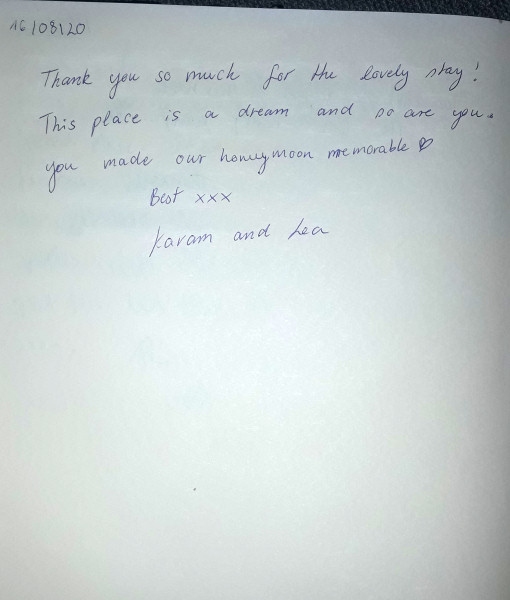 16/08/20
Thank you so much for the lovely stay!
This place is a dream and so are you.
you made our honeymoon memorable ♡
Best xxx
Karam and Lea